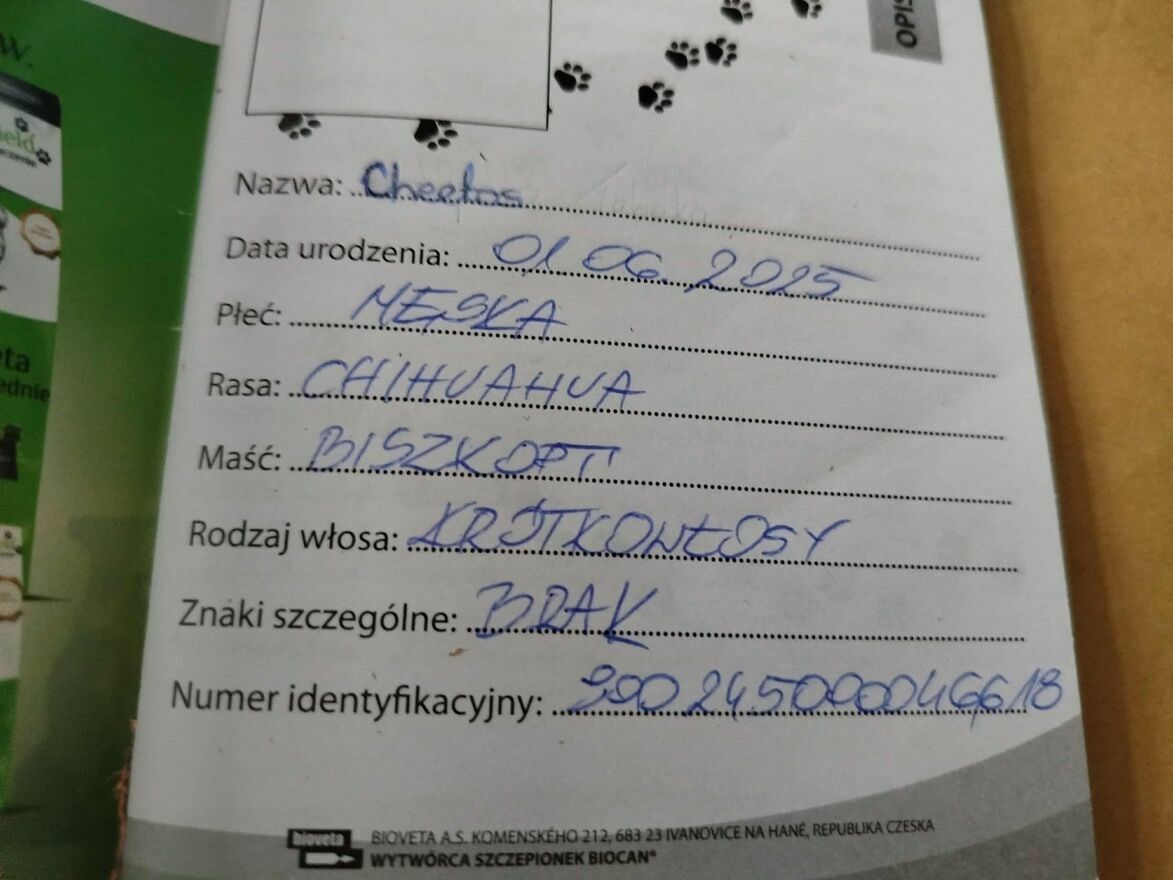 w.
ield
eta
ednie
OPIS
Nazwa: Cheetos
Data urodzenia: 01 06. 2025
Płeć: MĘSKA
Rasa: CHIHUAHUA
Maść: BISZKOPT
Rodzaj włosa: KRÓTKOWŁOSY
Znaki szczególne: BRAK
Numer identyfikacyjny: 990245000046618
bioveta
BIOVETA A.S. KOMENSKÉHO 212, 683 23 IVANOVICE NA HANÉ, REPUBLIKA CZESKA
WYTWÓRCA SZCZEPIONEK BIOCAN®